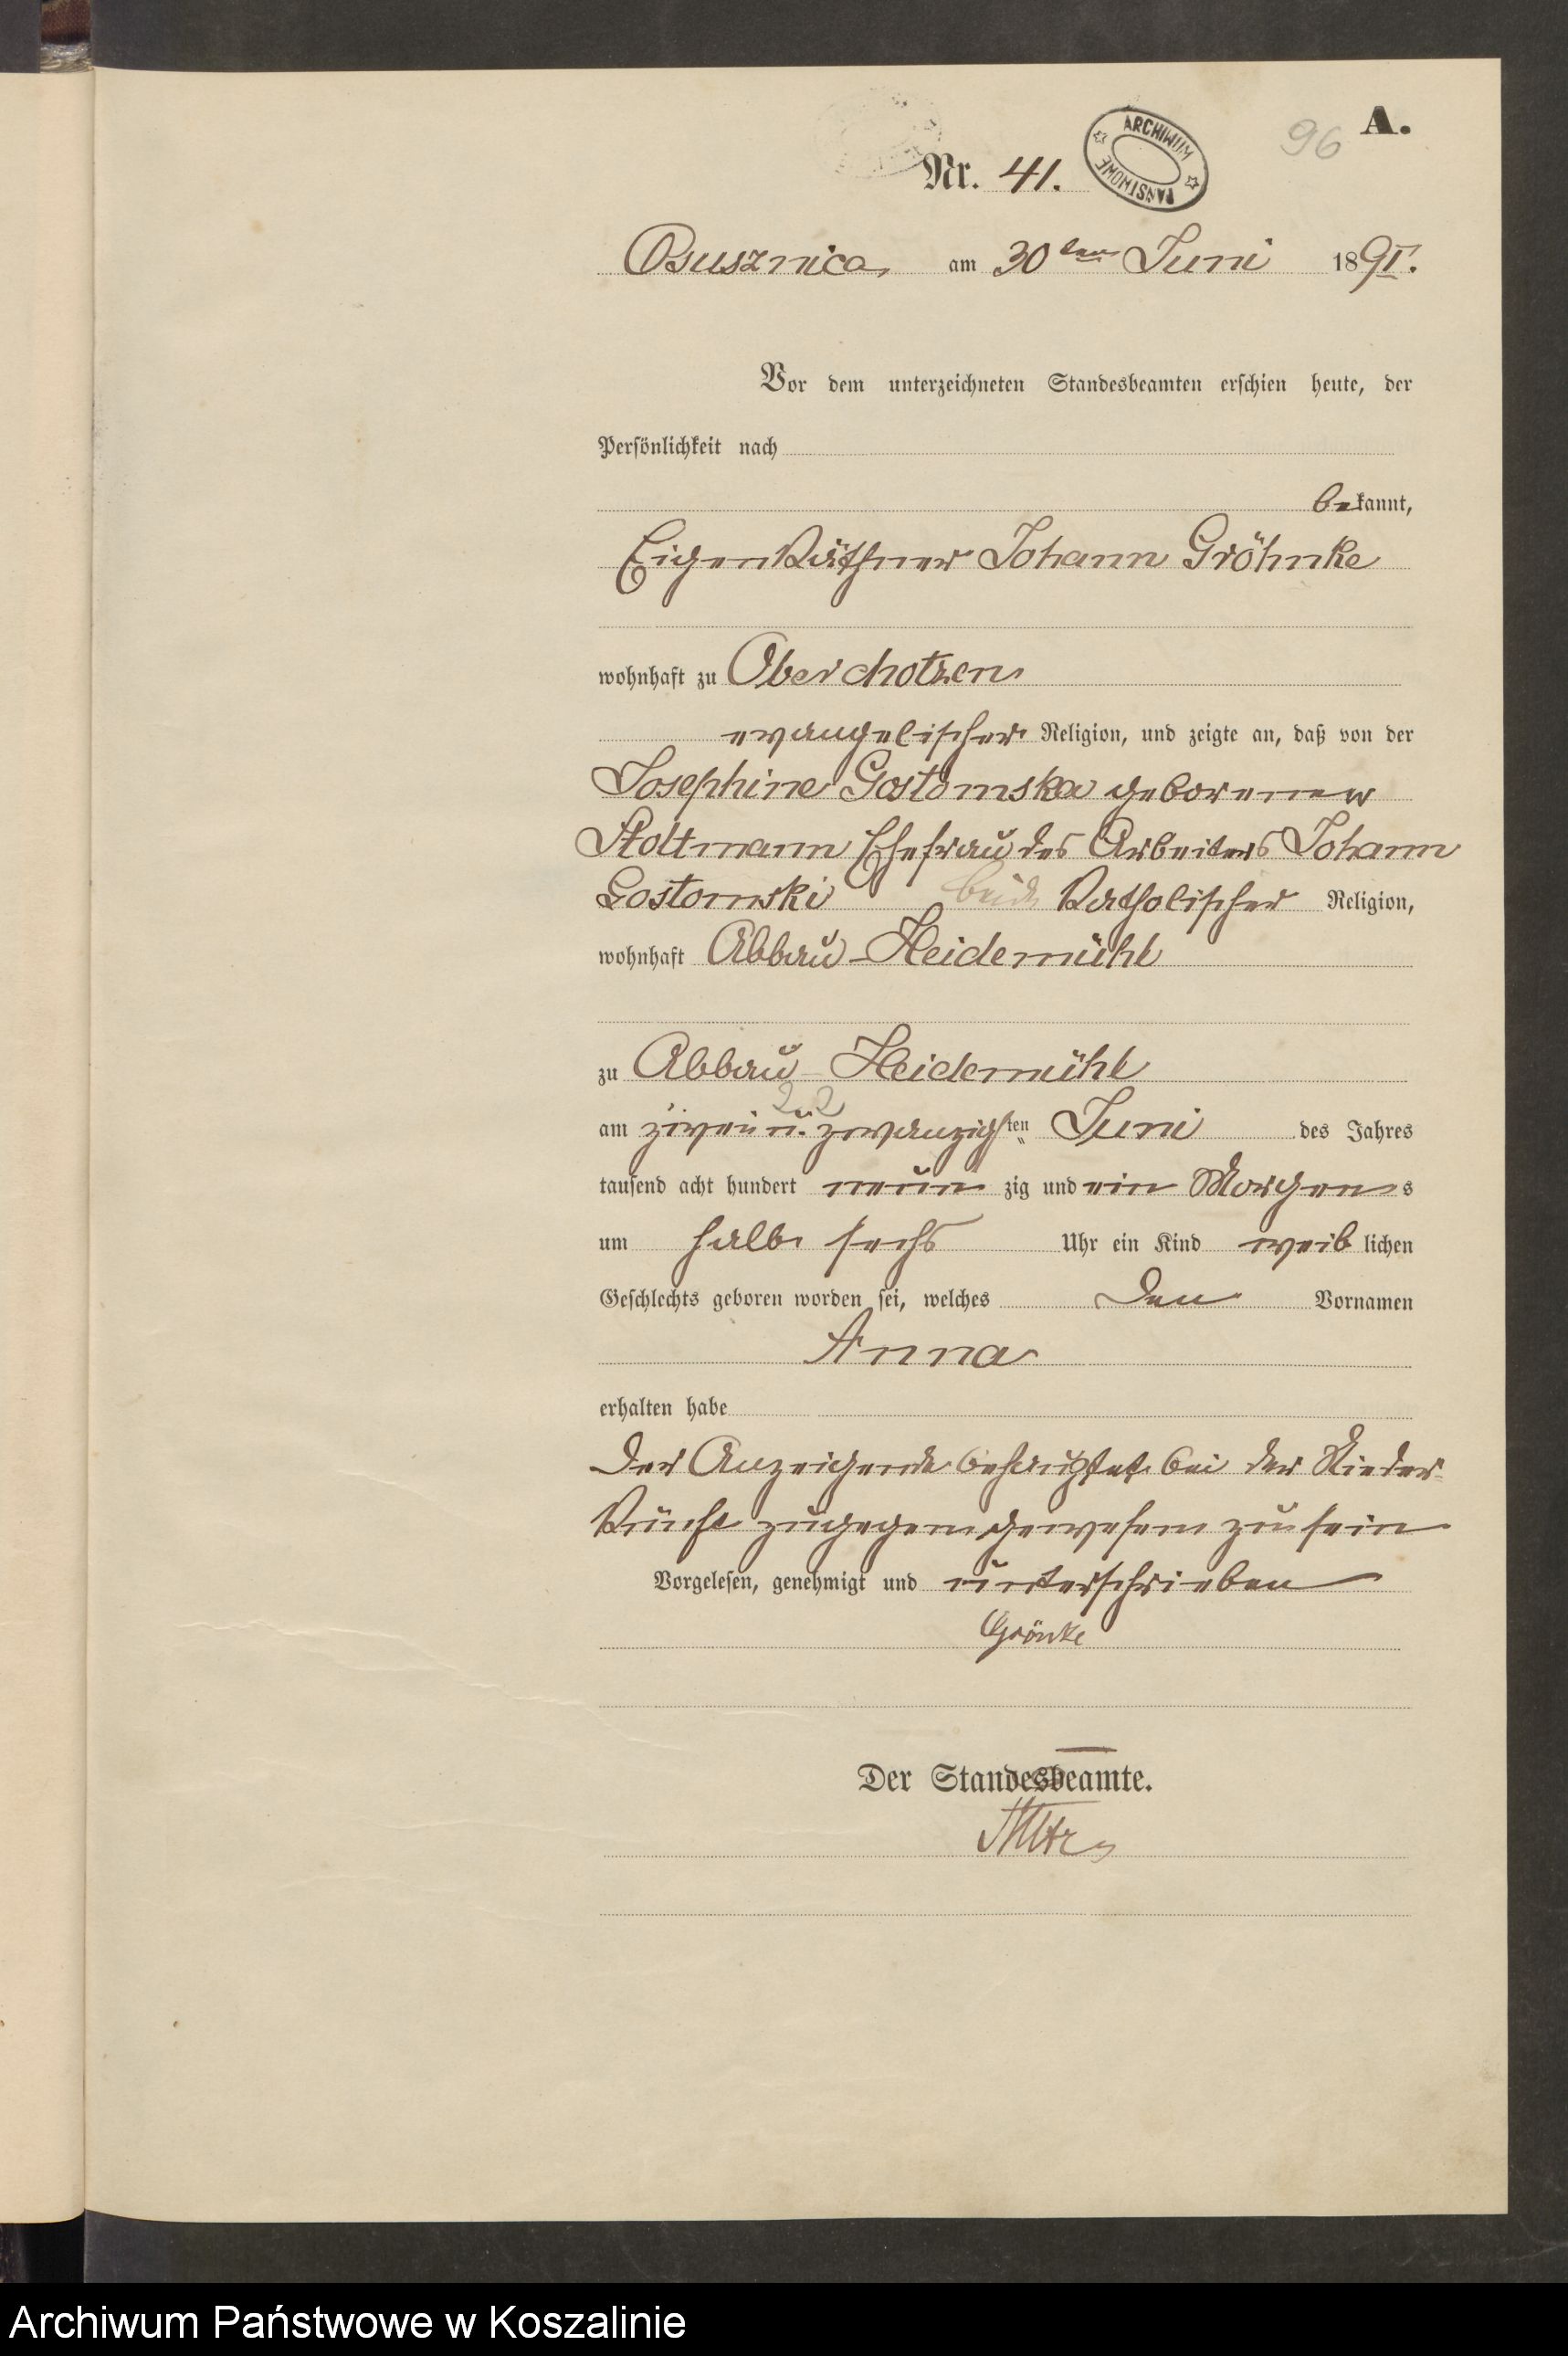 A.
96
Nr. 41.
ARCHIWUM PAŃSTWOWE
Osusznica am 30ten Juni 1891.
Vor dem unterzeichneten Standesbeamten erschien heute, der
Persönlichkeit nach
bekannt,
Eigenkäthner Johann Gröhnke
wohnhaft zu Oberchotzen
evangelischer Religion, und zeigte an, daß von der
Josephine Gostomska geborenen
Stoltmann Ehefrau des Arbeiters Johann
Gostomski beide katholischer Religion,
wohnhaft Abbau-Heidemühl
zu Abbau-Heidemühl
22
am zwei u. zwanzigsten Juni des Jahres
tausend acht hundert neun zig und ein Morgens
um halb sechs Uhr ein Kind weiblichen
Geschlechts geboren worden sei, welches den Vornamen
Anna
erhalten habe
Der Anzeigende behauptet bei der Nieder-
kunft zugegen gewesen zu sein
Vorgelesen, genehmigt und unterschrieben
Grönke
Der Standesbeamte.
Archiwum Państwowe w Koszalinie